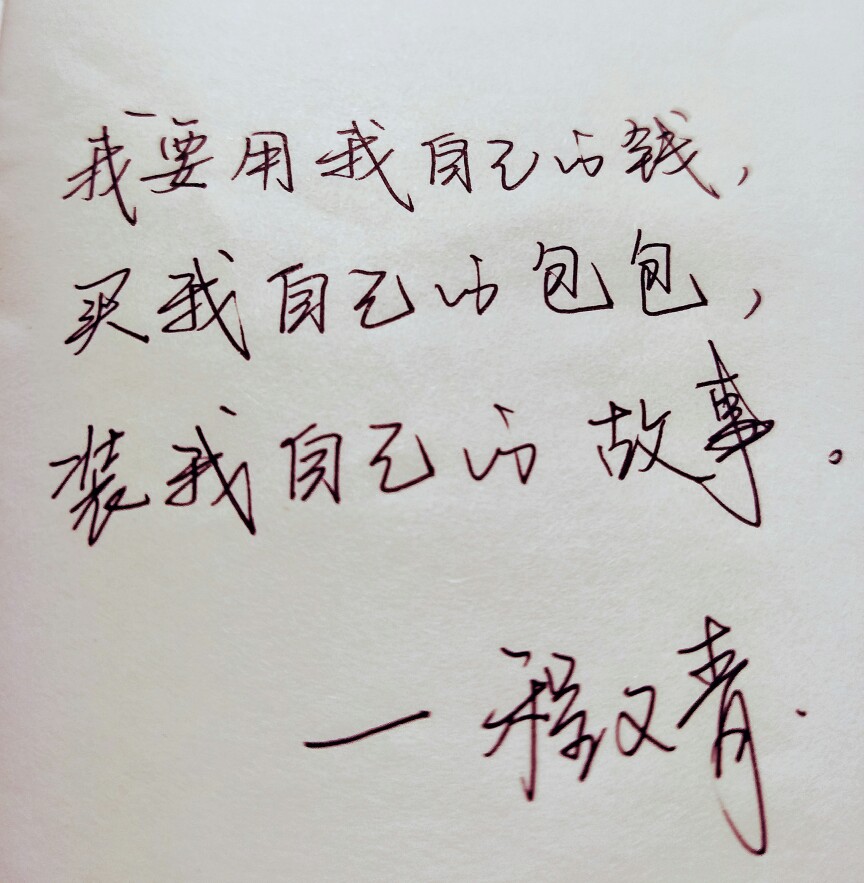 我要用我自己的钱，
买我自己的包包，
装我自己的故事。
—程又青.